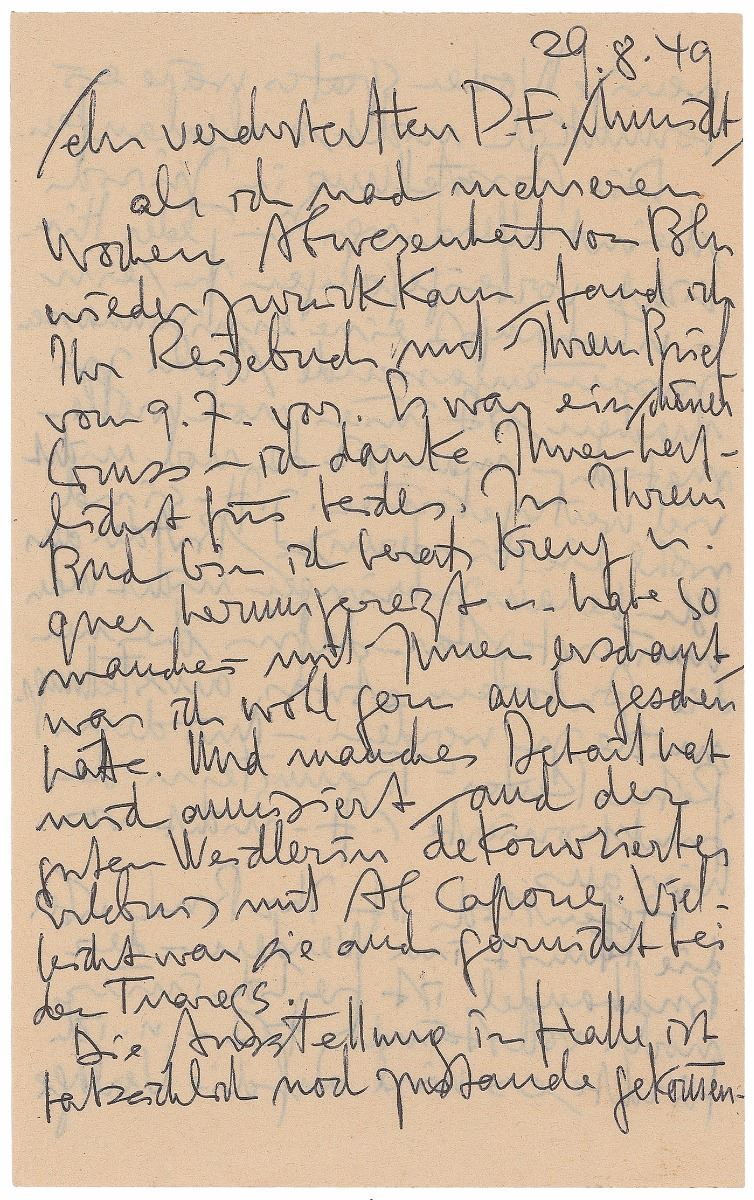 29.8.49
Sehr verehrter Herr D.F. Schmidt,
als ich nach mehreren
Wochen Abwesenheit von Bln
wieder zurückkam fand ich
Ihr Reisebuch und Ihren Brief
vom 9.7. vor. Es war ein schöner
Gruss – ich danke Ihnen herz-
lichst für beides. In Ihrem
Buch bin ich bereits kreuz u.
quer herumgereist u. habe so
manches mit Ihnen erschaut,
was ich wohl gern auch gesehen
hätte. Und manches Detail hat
mich amüsiert – auch der
guten Weidlerin dekouvriertes
Erlebnis mit Al Capone. Viel-
leicht war sie auch garnicht bei
den Tuaregs.
Die Ausstellung in Halle ist
tatsächlich noch zustande gekommen –